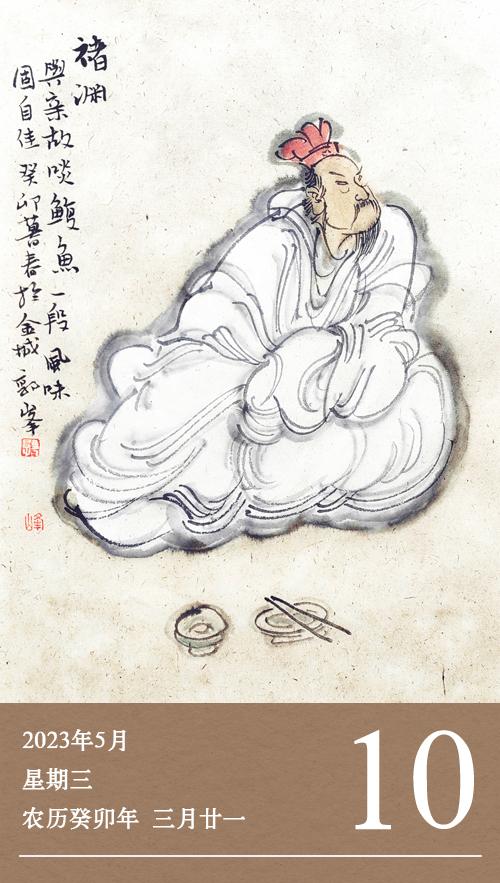 褚渊
與亲故啖鰒魚一段風味
固自佳 癸卯暮春於金城 郭峰
峰
2023年5月
星期三
农历癸卯年 三月廿一
10